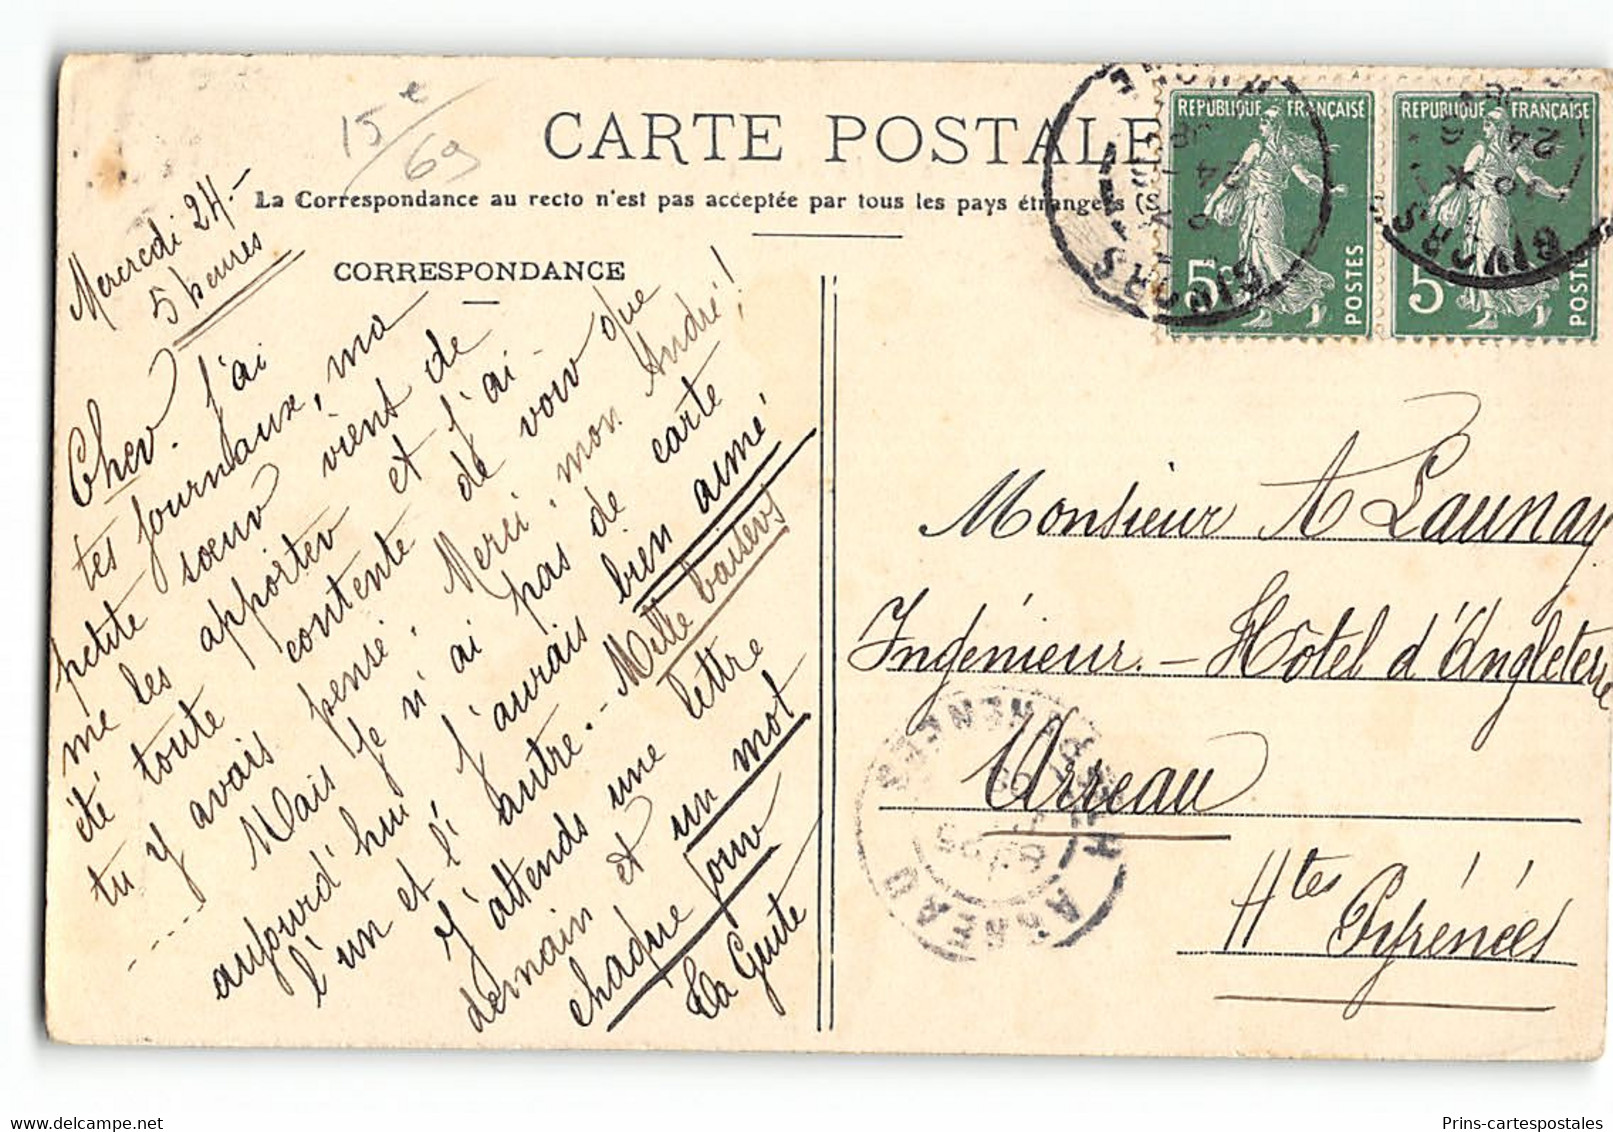 15e/69
CARTE POSTALE
La Correspondance au recto n'est pas acceptée par tous les pays étrangers (S
CORRESPONDANCE
Mercredi 24.-
5 heures
Cher. J'ai
tes journaux, ma
petite sœur vient de
me les apporter et j'ai
été toute contente de voir que
tu y avais pensé. Merci, mon André!
.... Mais je n'ai pas de carte
aujourd'hui j'aurais bien aimé
l'un et l'autre.- Mille baisers
J'attends une lettre
demain et un mot
chaque jour
Ta Guite
REPUBLIQUE FRANÇAISE
5c
POSTES
REPUBLIQUE FRANÇAISE
5
POSTES
GIVORS
RHONE
24
GIVORS
24
Monsieur A Launay
Ingénieur.- Hôtel d'Angleterre
Arreau
Htes Pyrénées
ARREAU
Prins-cartespostales